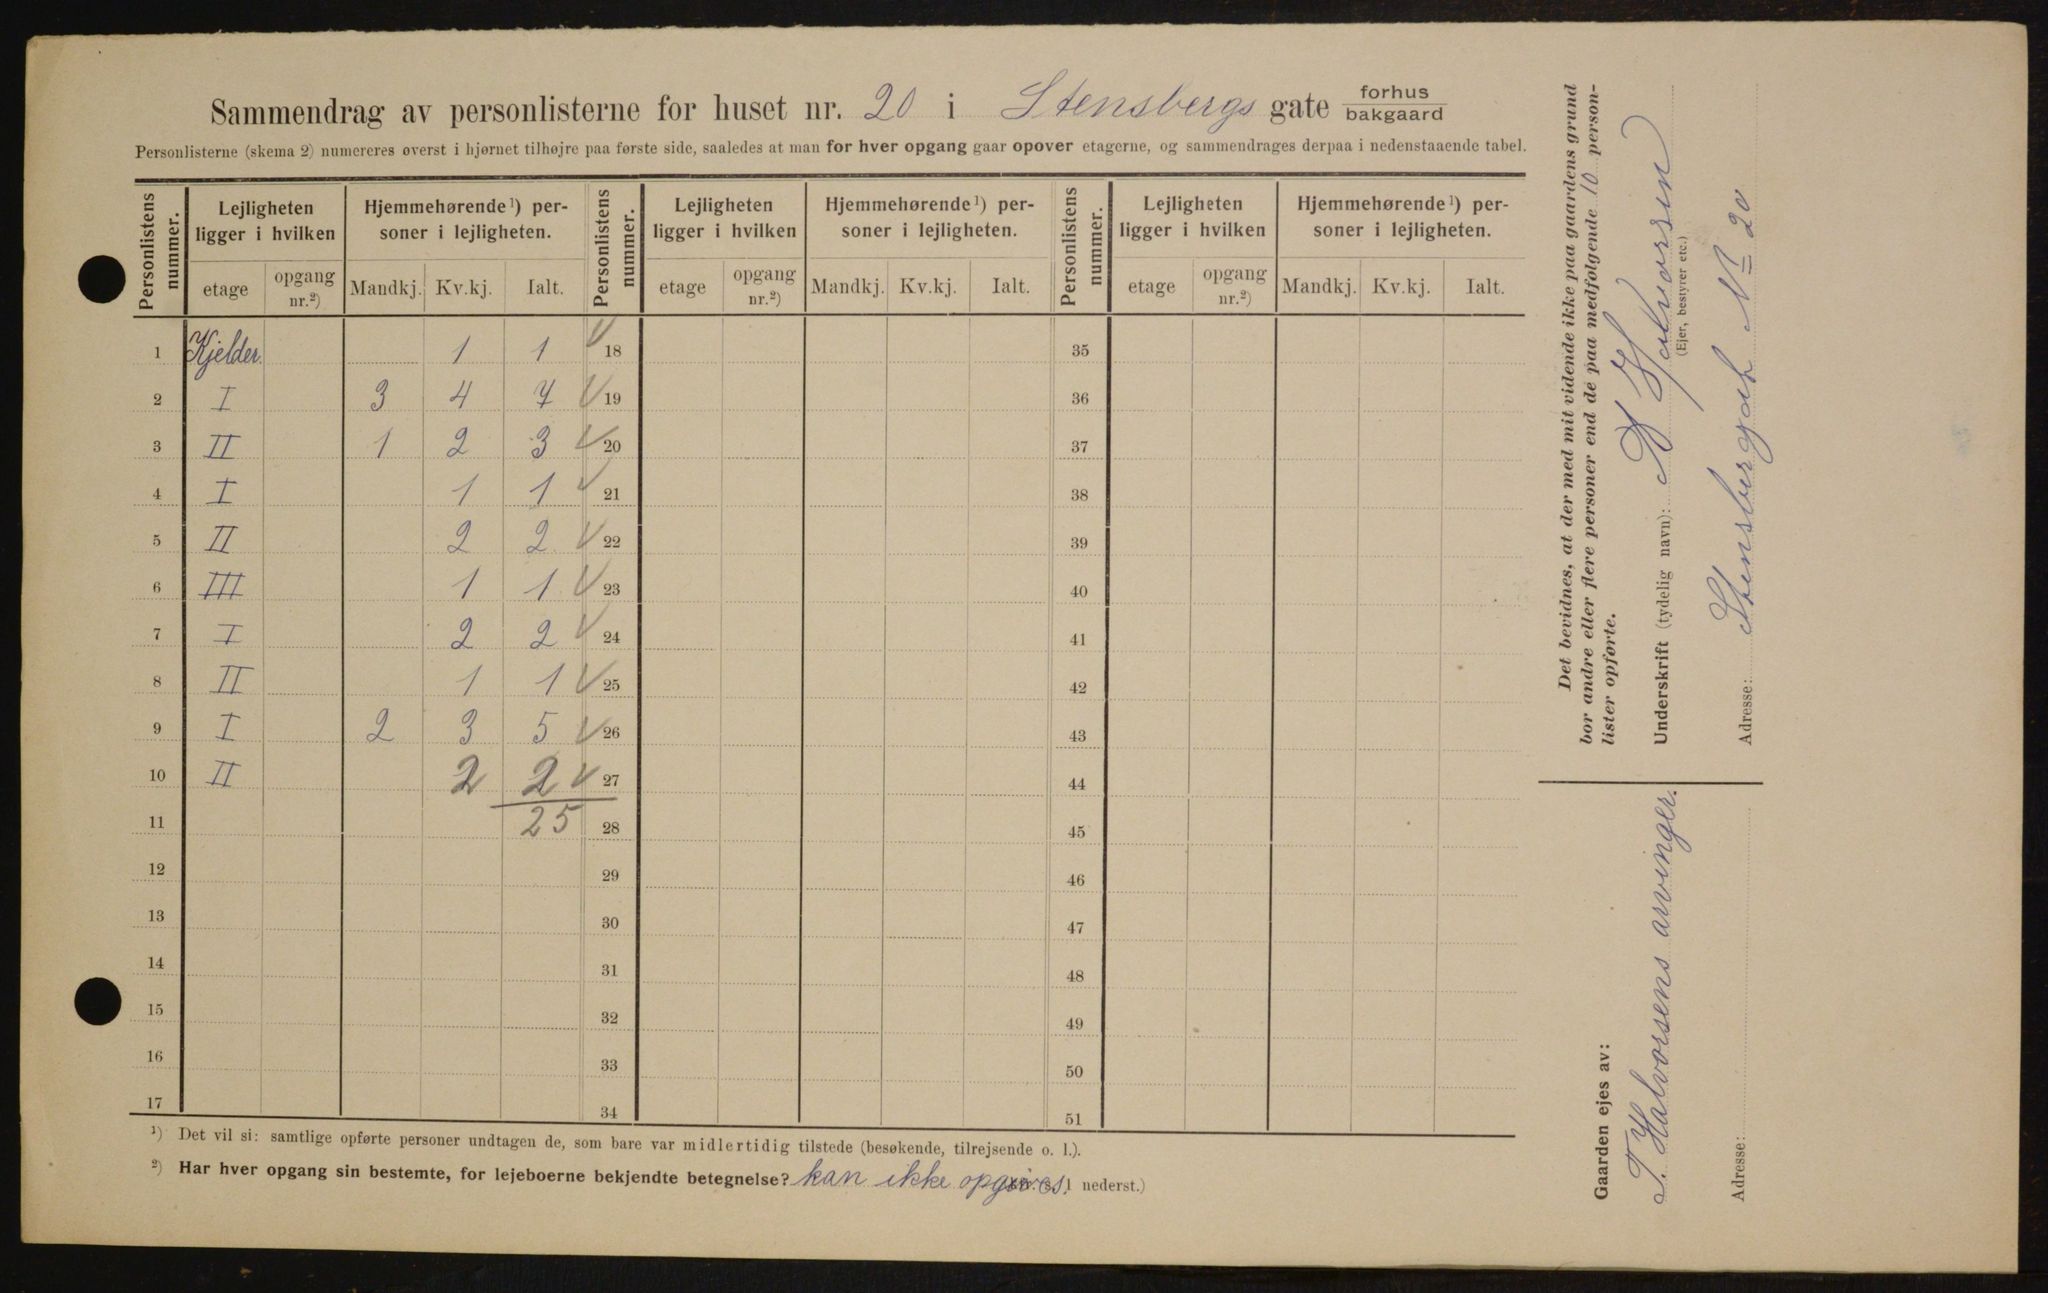 Sammendrag av personlisterne for huset nr. 20 i Stensbergs gate forhus bakgaard
Personlisterne (skema 2) numereres øverst i hjørnet tilhøjre paa første side, saaledes at man for hver opgang gaar opover etagerne, og sammendrages derpaa i nedenstaaende tabel.
Personlistens nummer. Lejligheten ligger i hvilken Hjemmehørende ¹) personer i lejligheten. Personlistens nummer. Lejligheten ligger i hvilken Hjemmehørende ¹) personer i lejligheten. Personlistens nummer. Lejligheten ligger i hvilken Hjemmehørende ¹) personer i lejligheten.
etage opgang nr.²) Mandkj. Kv.kj. Ialt. etage opgang nr.²) Mandkj. Kv.kj. Ialt. etage opgang nr.²) Mandkj. Kv.kj. Ialt.
1 Kjelder. 1 1 18 35
2 I 3 4 7 19 36
3 II 1 2 3 20 37
4 I 1 1 21 38
5 II 2 2 22 39
6 III 1 1 23 40
7 I 2 2 24 41
8 II 1 1 25 42
9 I 2 3 5 26 43
10 II 2 2 27 44
11 25 28 45
12 29 46
13 30 47
14 31 48
15 32 49
16 33 50
17 34 51
¹) Det vil si: samtlige opførte personer undtagen de, som bare var midlertidig tilstede (besøkende, tilrejsende o. l.).
²) Har hver opgang sin bestemte, for lejeboerne bekjendte betegnelse? kan ikke opgives. nederst.)
Det bevidnes, at der med mit vidende ikke paa gaardens grund
bor andre eller flere personer end de paa medfølgende 10 person-
lister opførte.
Underskrift (tydelig navn): Halvorsen
(Ejer, bestyrer etc.)
Adresse: Stensberggat Nr 20
Gaarden ejes av:
T. Halvorsens arvinger.
Adresse: